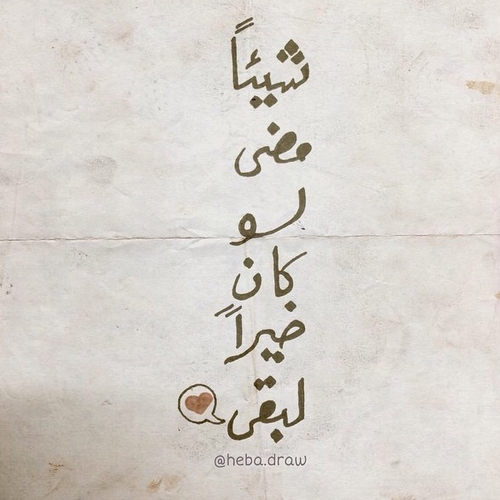 شيئاً
مضى
لو
كان
خيراً
لبقى
@heba.draw